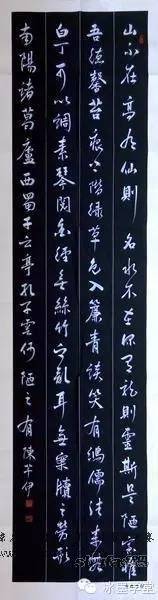 山不在高有仙則名水不在深有龍則靈斯是陋室惟
吾德馨苔痕上階綠草色入簾青談笑有鴻儒往來無
白丁可以調素琴閱金經無絲竹之亂耳無案牘之勞形
南陽諸葛廬西蜀子雲亭孔子云何陋之有 陳芊伊
水墨学堂